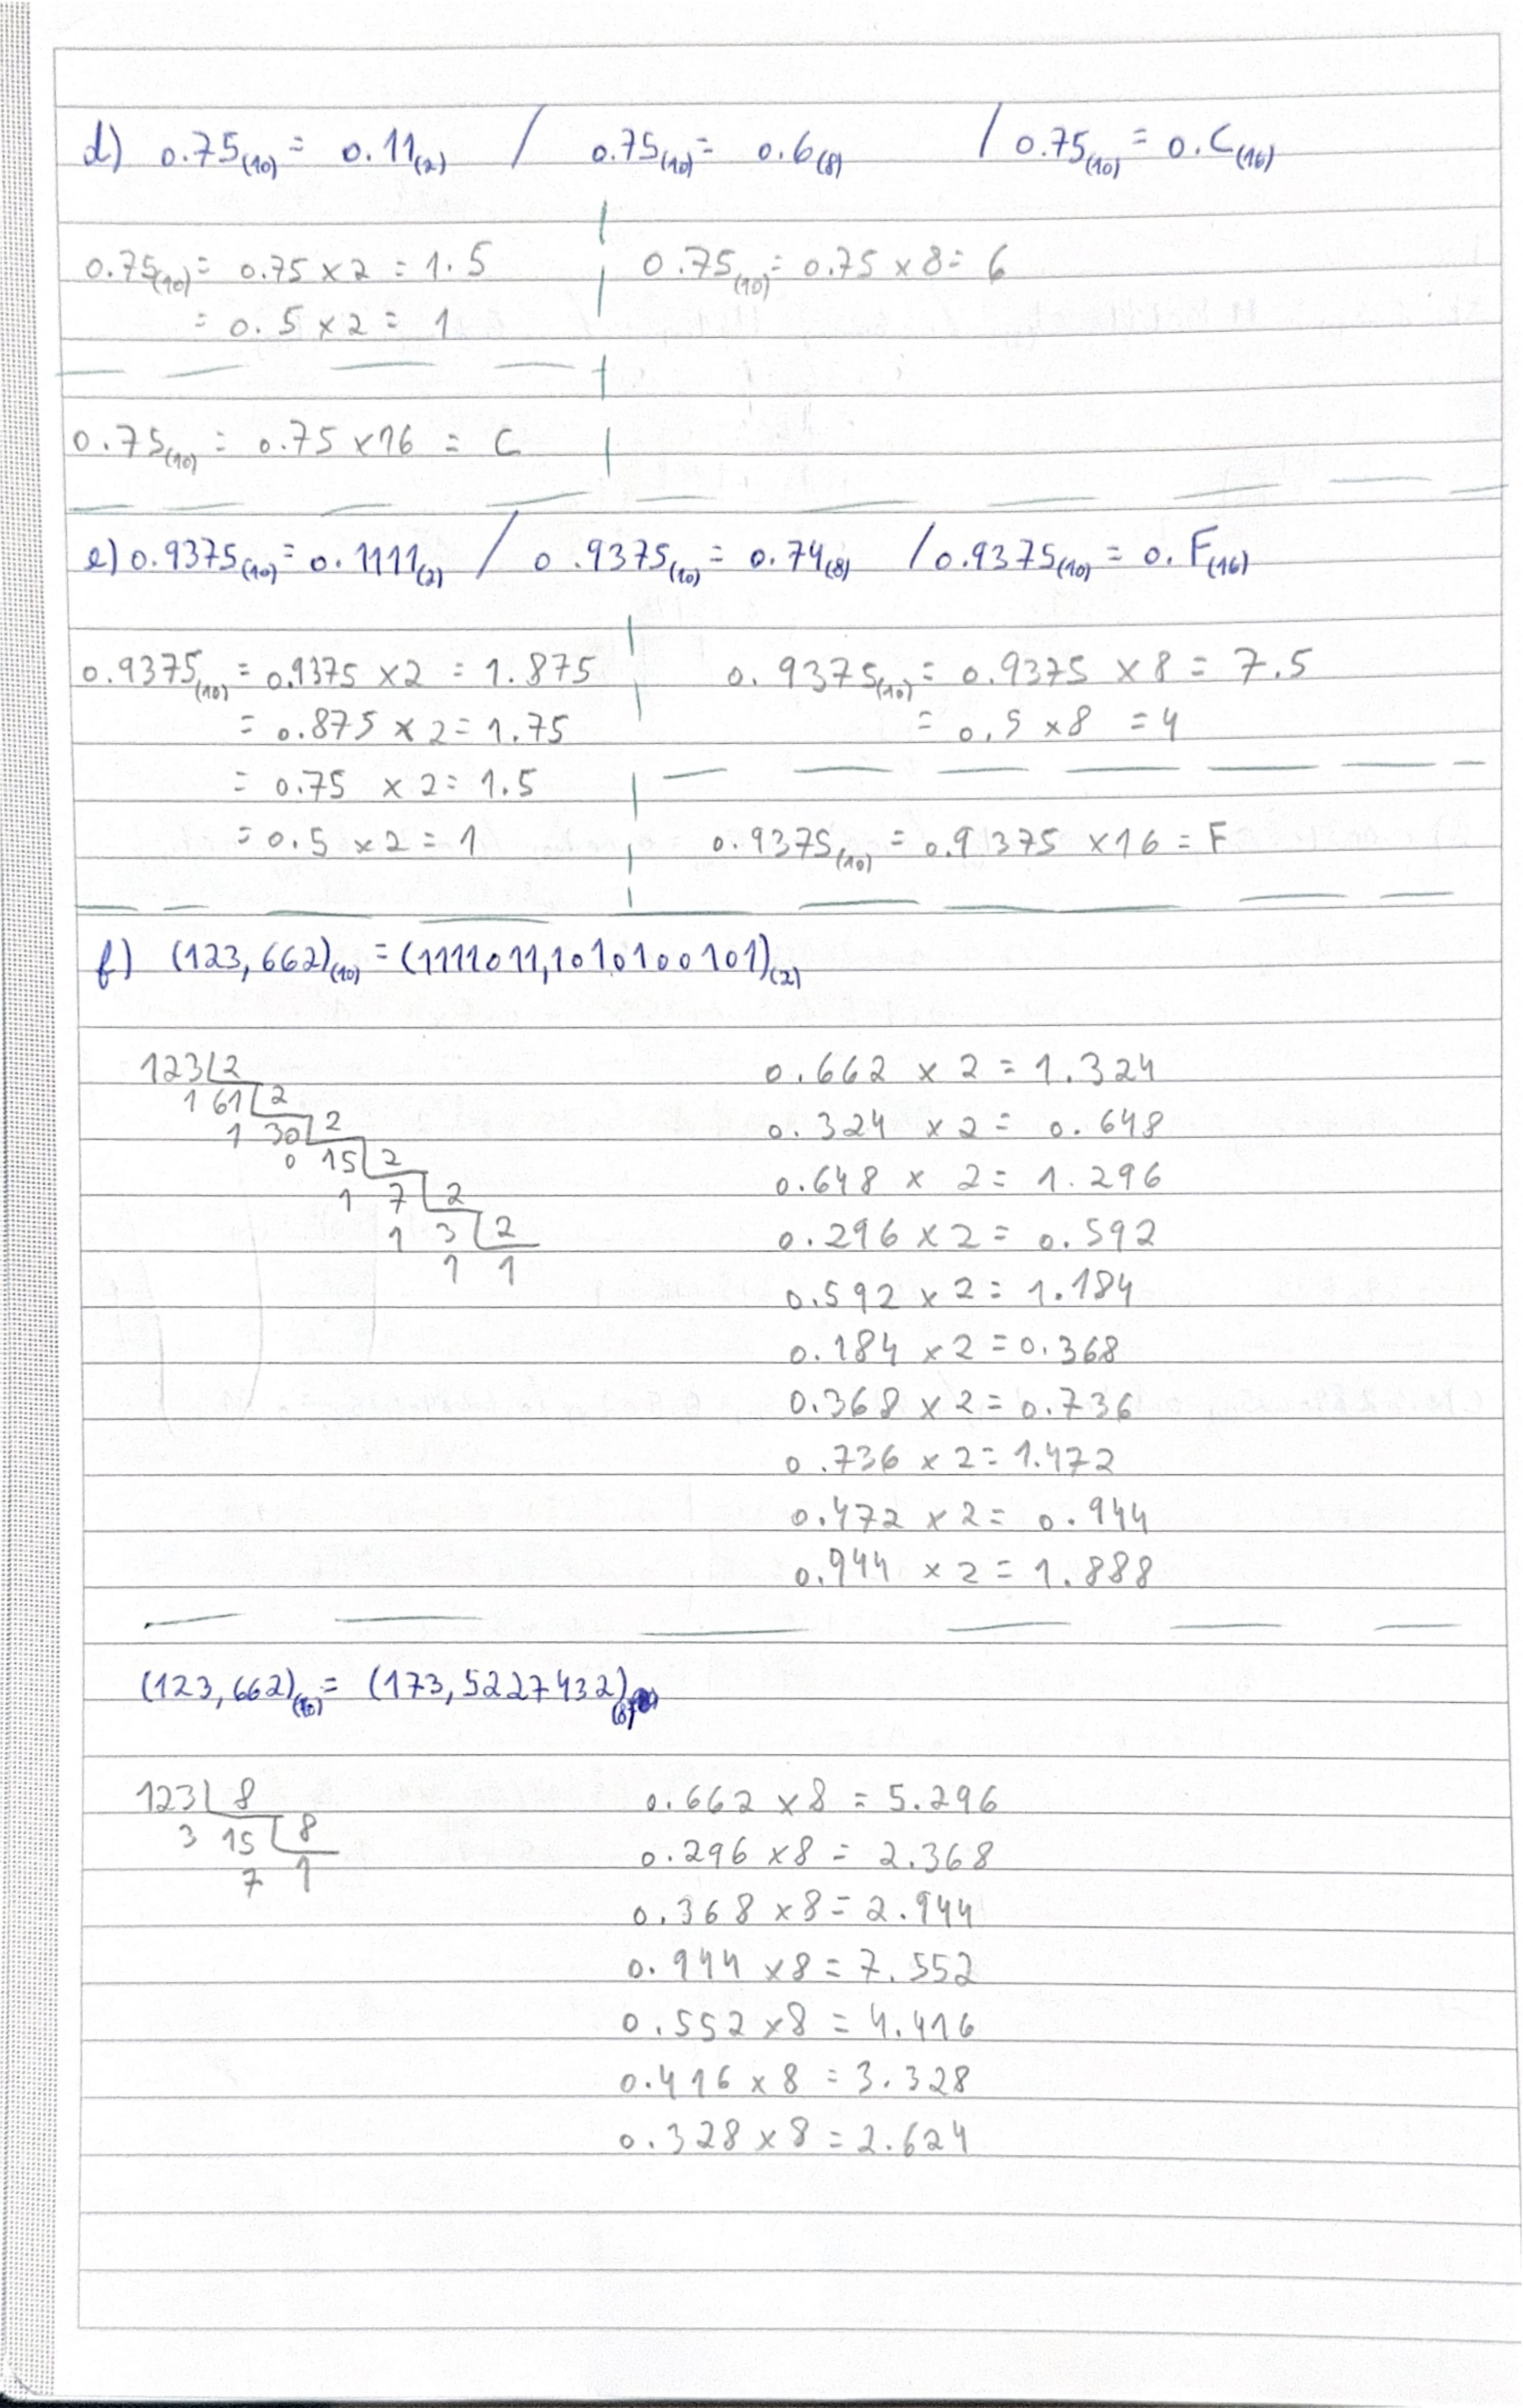 d) 0.75(10) = 0.11(2) / 0.75(10) = 0.6(8) / 0.75(10) = 0.C(16)
0.75(10) = 0.75 x 2 = 1.5
= 0.5 x 2 = 1
0.75(10) = 0.75 x 8 = 6
0.75(10) = 0.75 x 16 = C
e) 0.9375(10) = 0.1111(2) / 0.9375(10) = 0.74(8) / 0.9375(10) = 0.F(16)
0.9375(10) = 0.9375 x 2 = 1.875
= 0.875 x 2 = 1.75
= 0.75 x 2 = 1.5
= 0.5 x 2 = 1
0.9375(10) = 0.9375 x 8 = 7.5
= 0.5 x 8 = 4
0.9375(10) = 0.9375 x 16 = F
f) (123,662)(10) = (1111011,1010100101)(2)
123 2
1 61 2
1 30 2
0 15 2
1 7 2
1 3 2
1 1
0.662 x 2 = 1.324
0.324 x 2 = 0.648
0.648 x 2 = 1.296
0.296 x 2 = 0.592
0.592 x 2 = 1.184
0.184 x 2 = 0.368
0.368 x 2 = 0.736
0.736 x 2 = 1.472
0.472 x 2 = 0.944
0.944 x 2 = 1.888
(123,662)(10) = (173,5227432)(8)
123 8
3 15 8
7 1
0.662 x 8 = 5.296
0.296 x 8 = 2.368
0.368 x 8 = 2.944
0.944 x 8 = 7.552
0.552 x 8 = 4.416
0.416 x 8 = 3.328
0.328 x 8 = 2.624